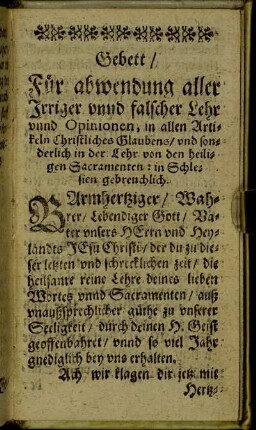 Gebett/
Für abwendung aller
Irriger vnnd falscher Lehr
vnnd Opinionen, in allen Arti-
keln Christliches Glaubens/ vnd son-
derlich in der Lehr von den heili-
gen Sacramenten: in Schle-
sien gebreuchlich.
BArmhertziger/ Wah-
rer/ Lebendiger Gott/ Va-
ter vnsers HErrn vnd Hey-
landts JEsu Christi/ der du zu die-
ser letzten vnd schrecklichen zeit/ die
heilsame reine Lehre deines lieben
Wortes vnnd Sacramenten/ auß
vnaußsprechlicher güthe zu vnserer
Seeligkeit/ durch deinen H. Geist
geoffenbahret/ vnnd so viel Jahr
gnediglich bey vns erhalten.
Ach wir klagen dir jetz mit
Hertz-